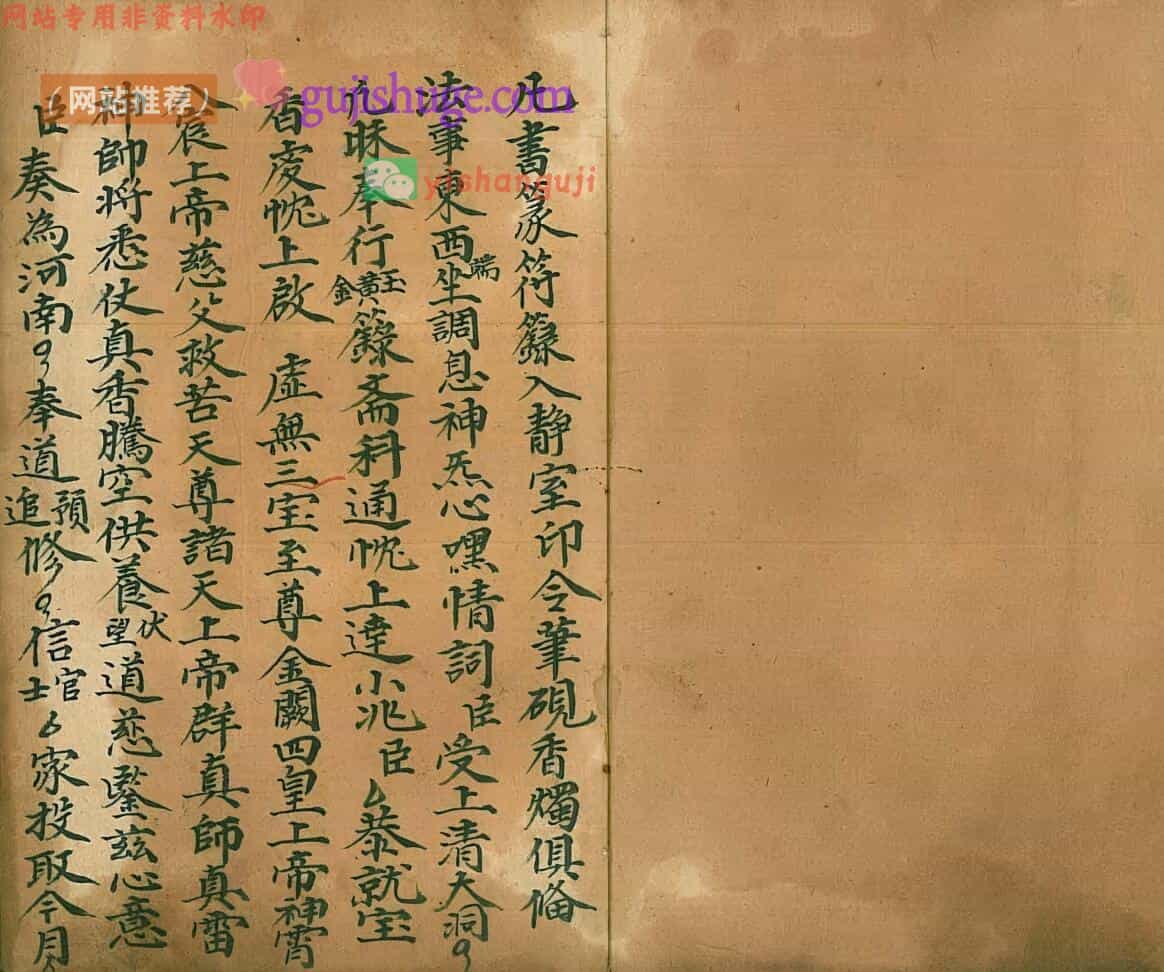 网站专用非资料水印
（网站推荐）
gujishuge.com
yishanguji
凡書篆符籙入静室印令筆硯香燭俱俻
法事東西坐端調息神炁心嘿情詞臣受上清大洞
九昧奉行玉黄金籙斋科通忱上達小兆臣厶恭就宝
香虔忱上啟 虚無三宝至尊金闕四皇上帝神霄
宸上帝慈父救苦天尊諸天上帝群真師真雷
神帥将悉仗真香騰空供養伏望道慈鑒兹心意
臣奏為河南奉道預追修信官士厶家投取今月